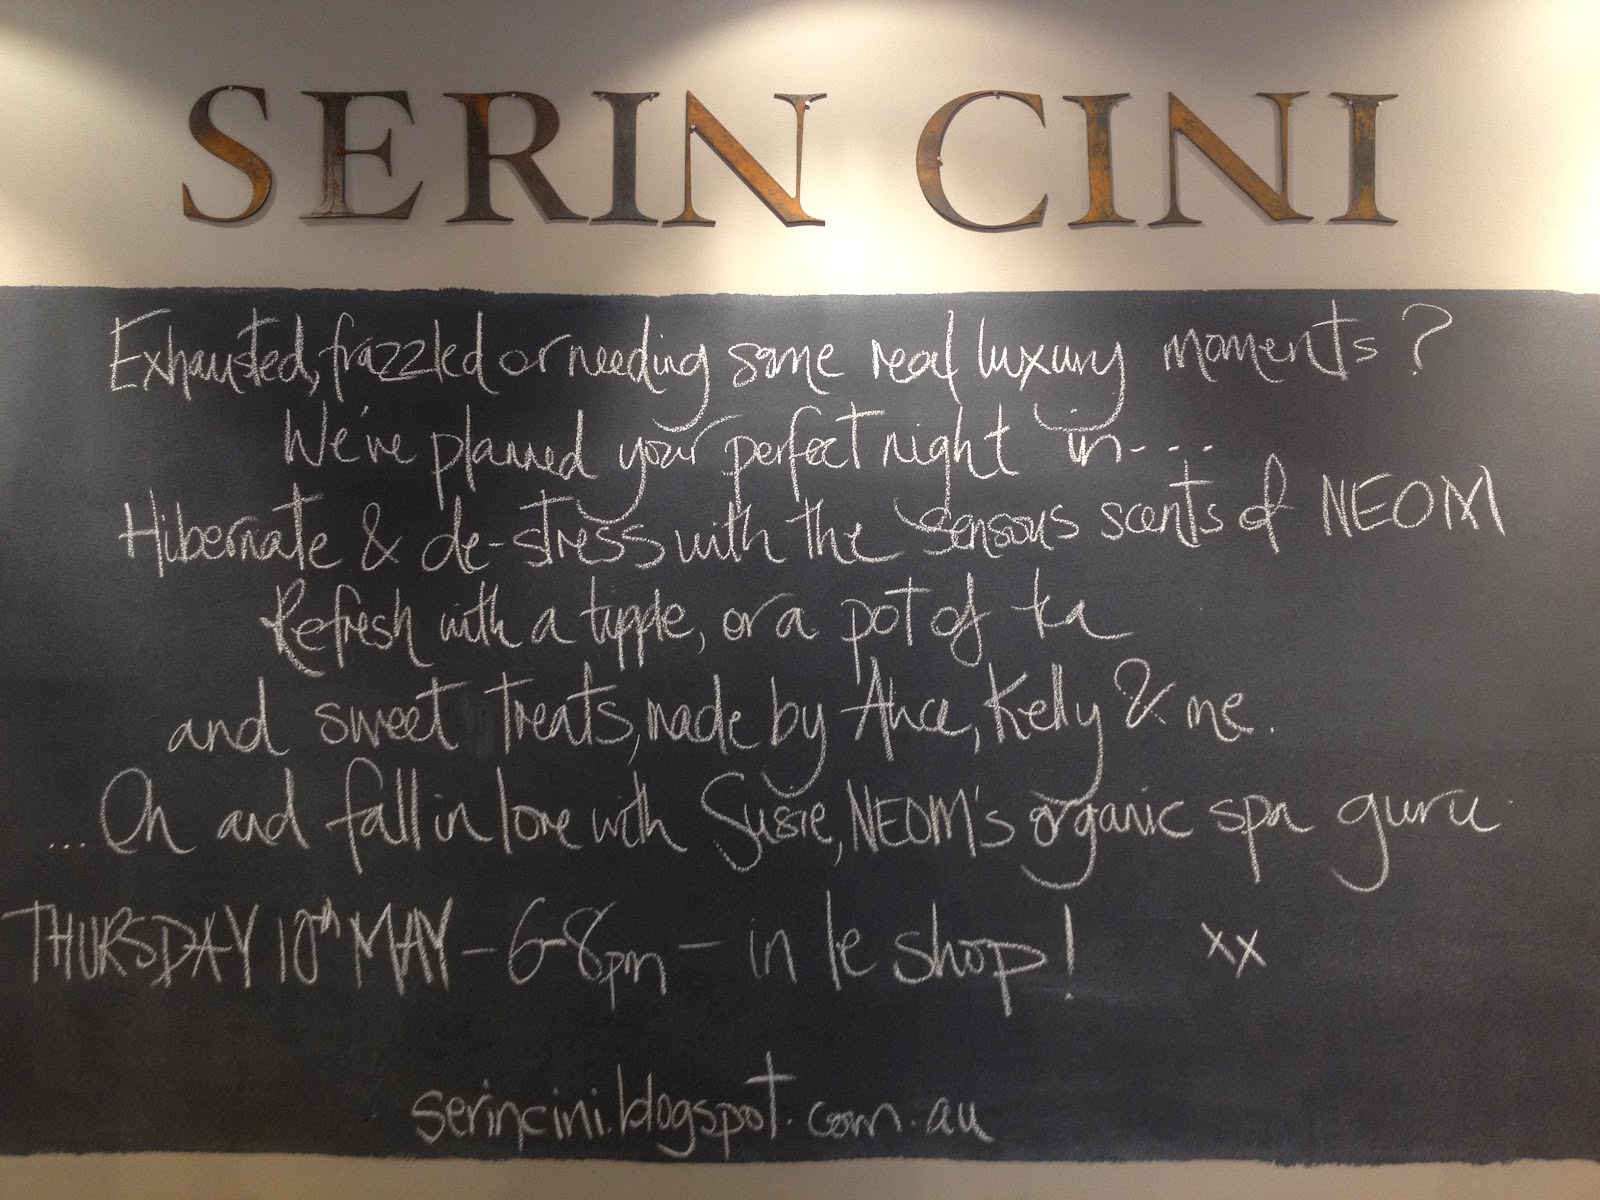 SERIN CINI
Exhausted, frazzled or needing some real luxury moments?
We've planned your perfect night in----
Hibernate & de-stress with the sensous scents of NEOM
Refresh with a tipple, or a pot of tea
and sweet treats, made by Alice, Kelly & me.
...Oh and fall in love with Susie, NEOM's organic spa guru
THURSDAY 10th MAY - 6-8pm - in le shop! xx
serincini.blogspot.com.au